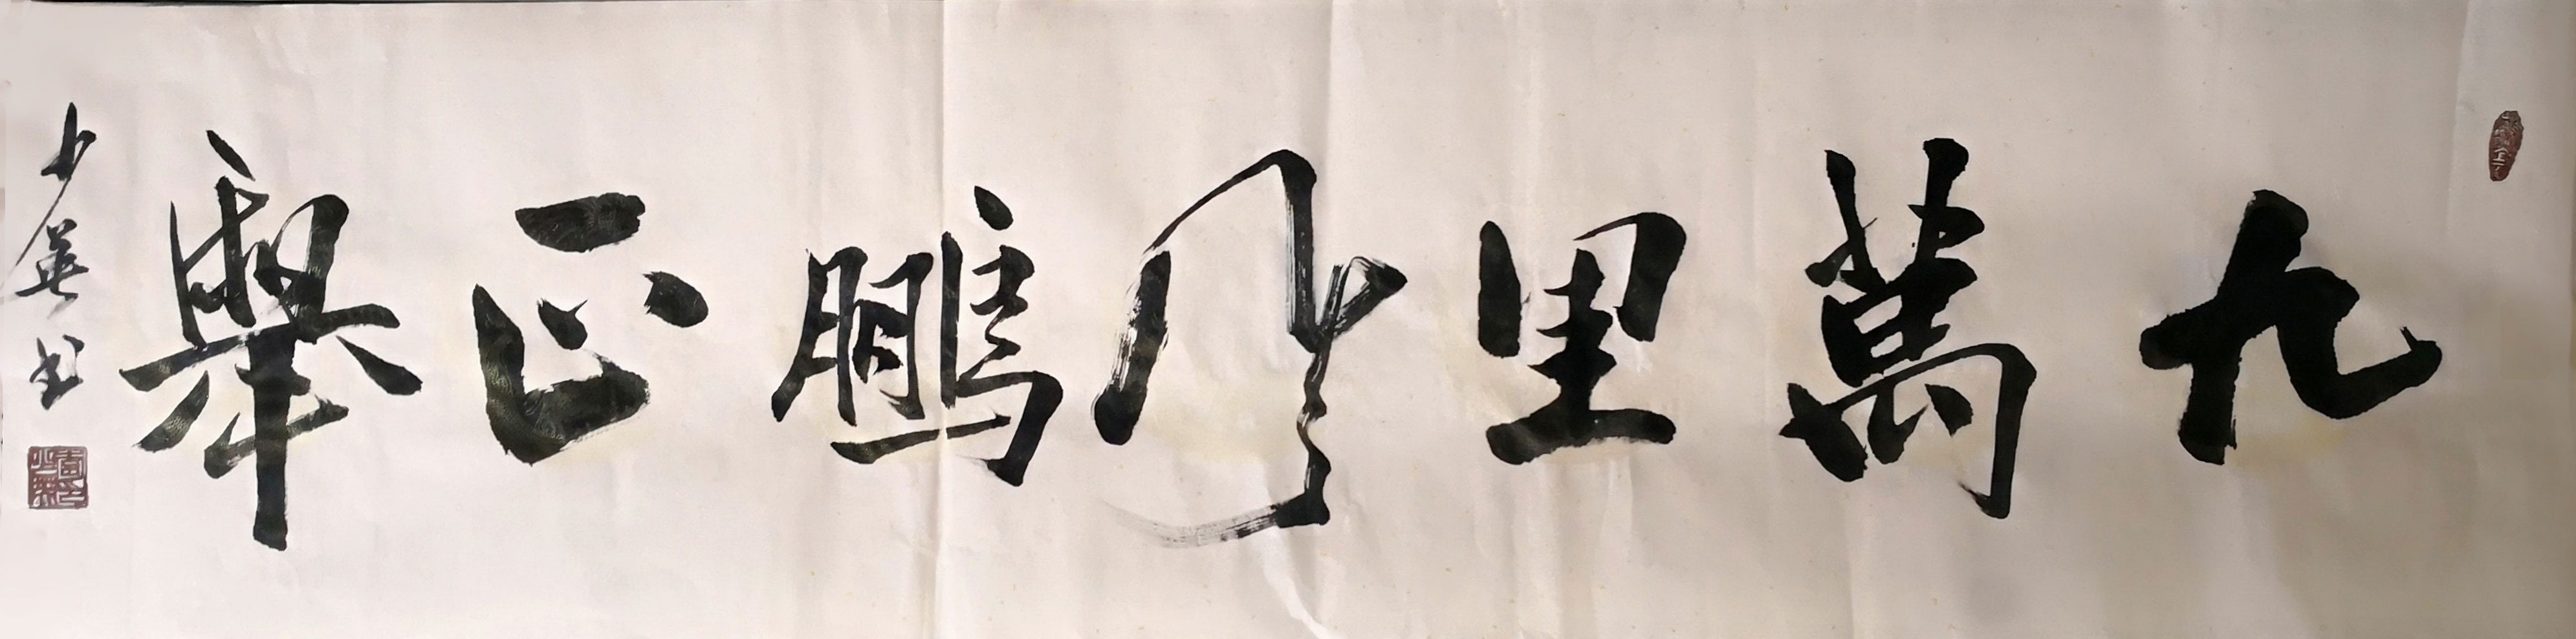 九萬里風鵬正舉
少華书